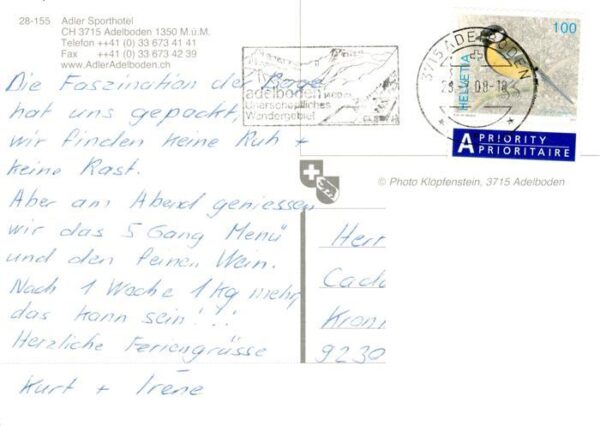 28-155 Adler Sporthotel
CH 3715 Adelboden 1350 M.ü.M.
Telefon ++41 (0) 33 673 41 41
Fax ++41 (0) 33 673 42 39
www.AdlerAdelboden.ch
Die Faszination der Berge
hat uns gepackt,
wir finden keine Ruh +
keine Rast.
Aber am Abend geniessen
wir das 5 Gang Menü
und den feinen Wein.
Nach 1 Woche 1 Kg mehr
das kann sein!!!
Herzliche Feriengrüsse
Kurt + Irene
adelboden
Unerschöpfliches
Wandergebiet
3715 ADELBODEN
08-18
HELVETIA
100
A PRIORITY
PRIORITAIRE
© Photo Klopfenstein, 3715 Adelboden
Herr
Cada
Kron
9230